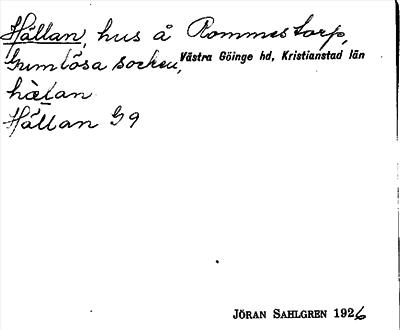 Hällan, hus å Rommestorp,
Gumlösa socken, Västra Göinge hd, Kristianstad län
hæ̀lan
Hällan G 9
JÖRAN SAHLGREN 1926